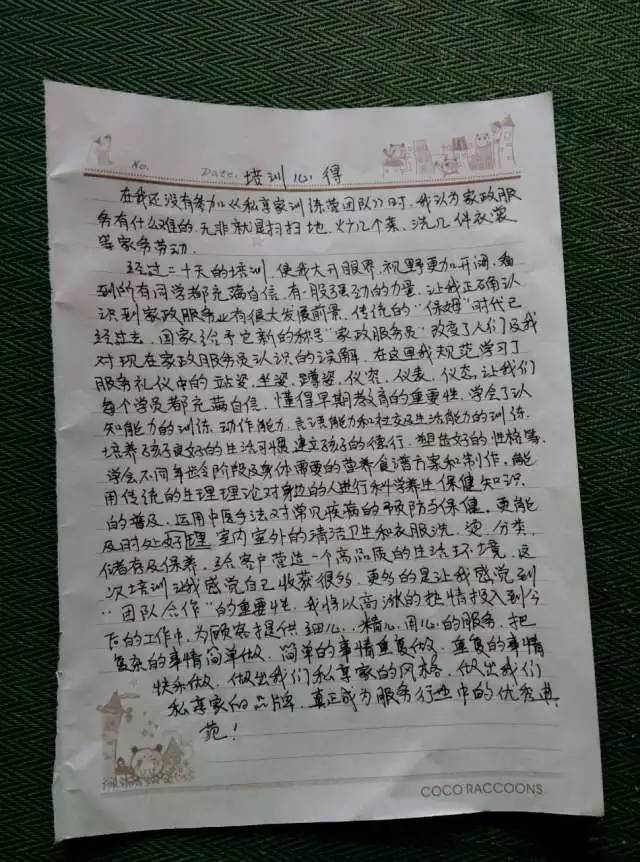 No.
Date: 培训心得
在我还没有参加《私享家训练营团队》时,我认为家政服
务有什么难的,无非就是扫扫地,炒几个菜、洗几件衣裳
等家务劳动.
经过二十天的培训,使我大开眼界,视野更加开阔,看
到所有同学都充满自信,有一股强劲的力量,让我正确认
识到家政服务业有很大发展前景,传统的"保姆"时代已
经过去,国家给予它新的称号"家政服务员"改变了人们及我
对现在家政服务员认识的误解,在这里我规范学习了
服务礼仪中的站姿,坐姿,蹲姿,仪容,仪表,仪态,让我们
每个学员都充满自信,懂得早期教育的重要性,学会了认
知能力的训练,动作能力,言语能力和社交及生活能力的训练,
培养孩子良好的生活习惯,建立孩子的德行,塑造好的性格等,
学会不同年龄阶段及身体需要的营养食谱方案和制作,能
用传统的生理理论对身边的人进行科学养生保健知识
的普及,运用中医手法对常见疾病的预防与保健,更能
及时处好理室内室外的清洁卫生和衣服洗,烫,分类,
储存及保养,给客户营造一个高品质的生活环境,这
次培训让我感觉自己收获很多,更多的是让我感觉到
"团队合作"的重要性,我将以高涨的热情投入到今
后的工作中,为顾客提供细心,精心,用心的服务,把
复杂的事情简单做,简单的事情重复做,重复的事情
快乐做,做出我们私享家的风格,做出我们
私享家的品牌,真正成为服务行业中的优秀典
范!
COCO RACCOONS